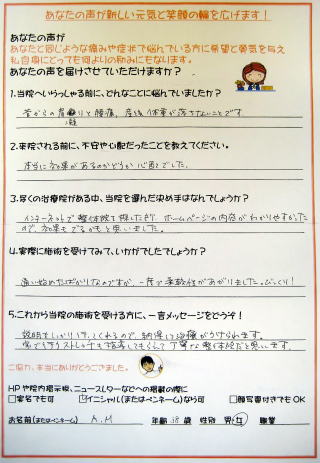 あなたの声が新しい元気と笑顔の輪を広げます！
あなたの声が
あなたと同じような痛みや症状で悩んでいる方に希望と勇気を与え
私自身にとっても何よりの励みにもなります。
あなたの声を届けさせていただけますか？
1.当院へいらっしゃる前に、どれなことに悩んでいましたか？
昔からの肩こりと腰痛、産後体重が落ちないことです
2.来院される前に、不安や心配だったことを教えてください。
本当に効果があるのかどうか心配でした。
3.尽くの治療院がある中、当院を選んだ決め手はなんでしょうか？
インターネットで整体院を探したが、ホームページの内容がわかりやすかった
ので、効果もでるかもと思いました。
4.実際に施術を受けてみて、いかがでしたでしょうか？
通い始めたばかりなのですが、一度で柔軟性があがりました。びっくり！
5.これから当院の施術を受ける方に、一言メッセージをどうぞ！
説明をしっかりしてくれるので、納得して治療がうけられます。
家で行うストレッチも指導してもらえて丁寧な整体院だと思います。
ご協力、本当にありがとうございました。
HPや院内掲示板、ニュースレターなどへの掲載の際に
□実名でも可 ☑イニシャル(またはペンネーム)なら可 □顔写真付きでもOK
お名前(またはペンネーム) A.M 年齢 38 歳 性別 男・女 職業